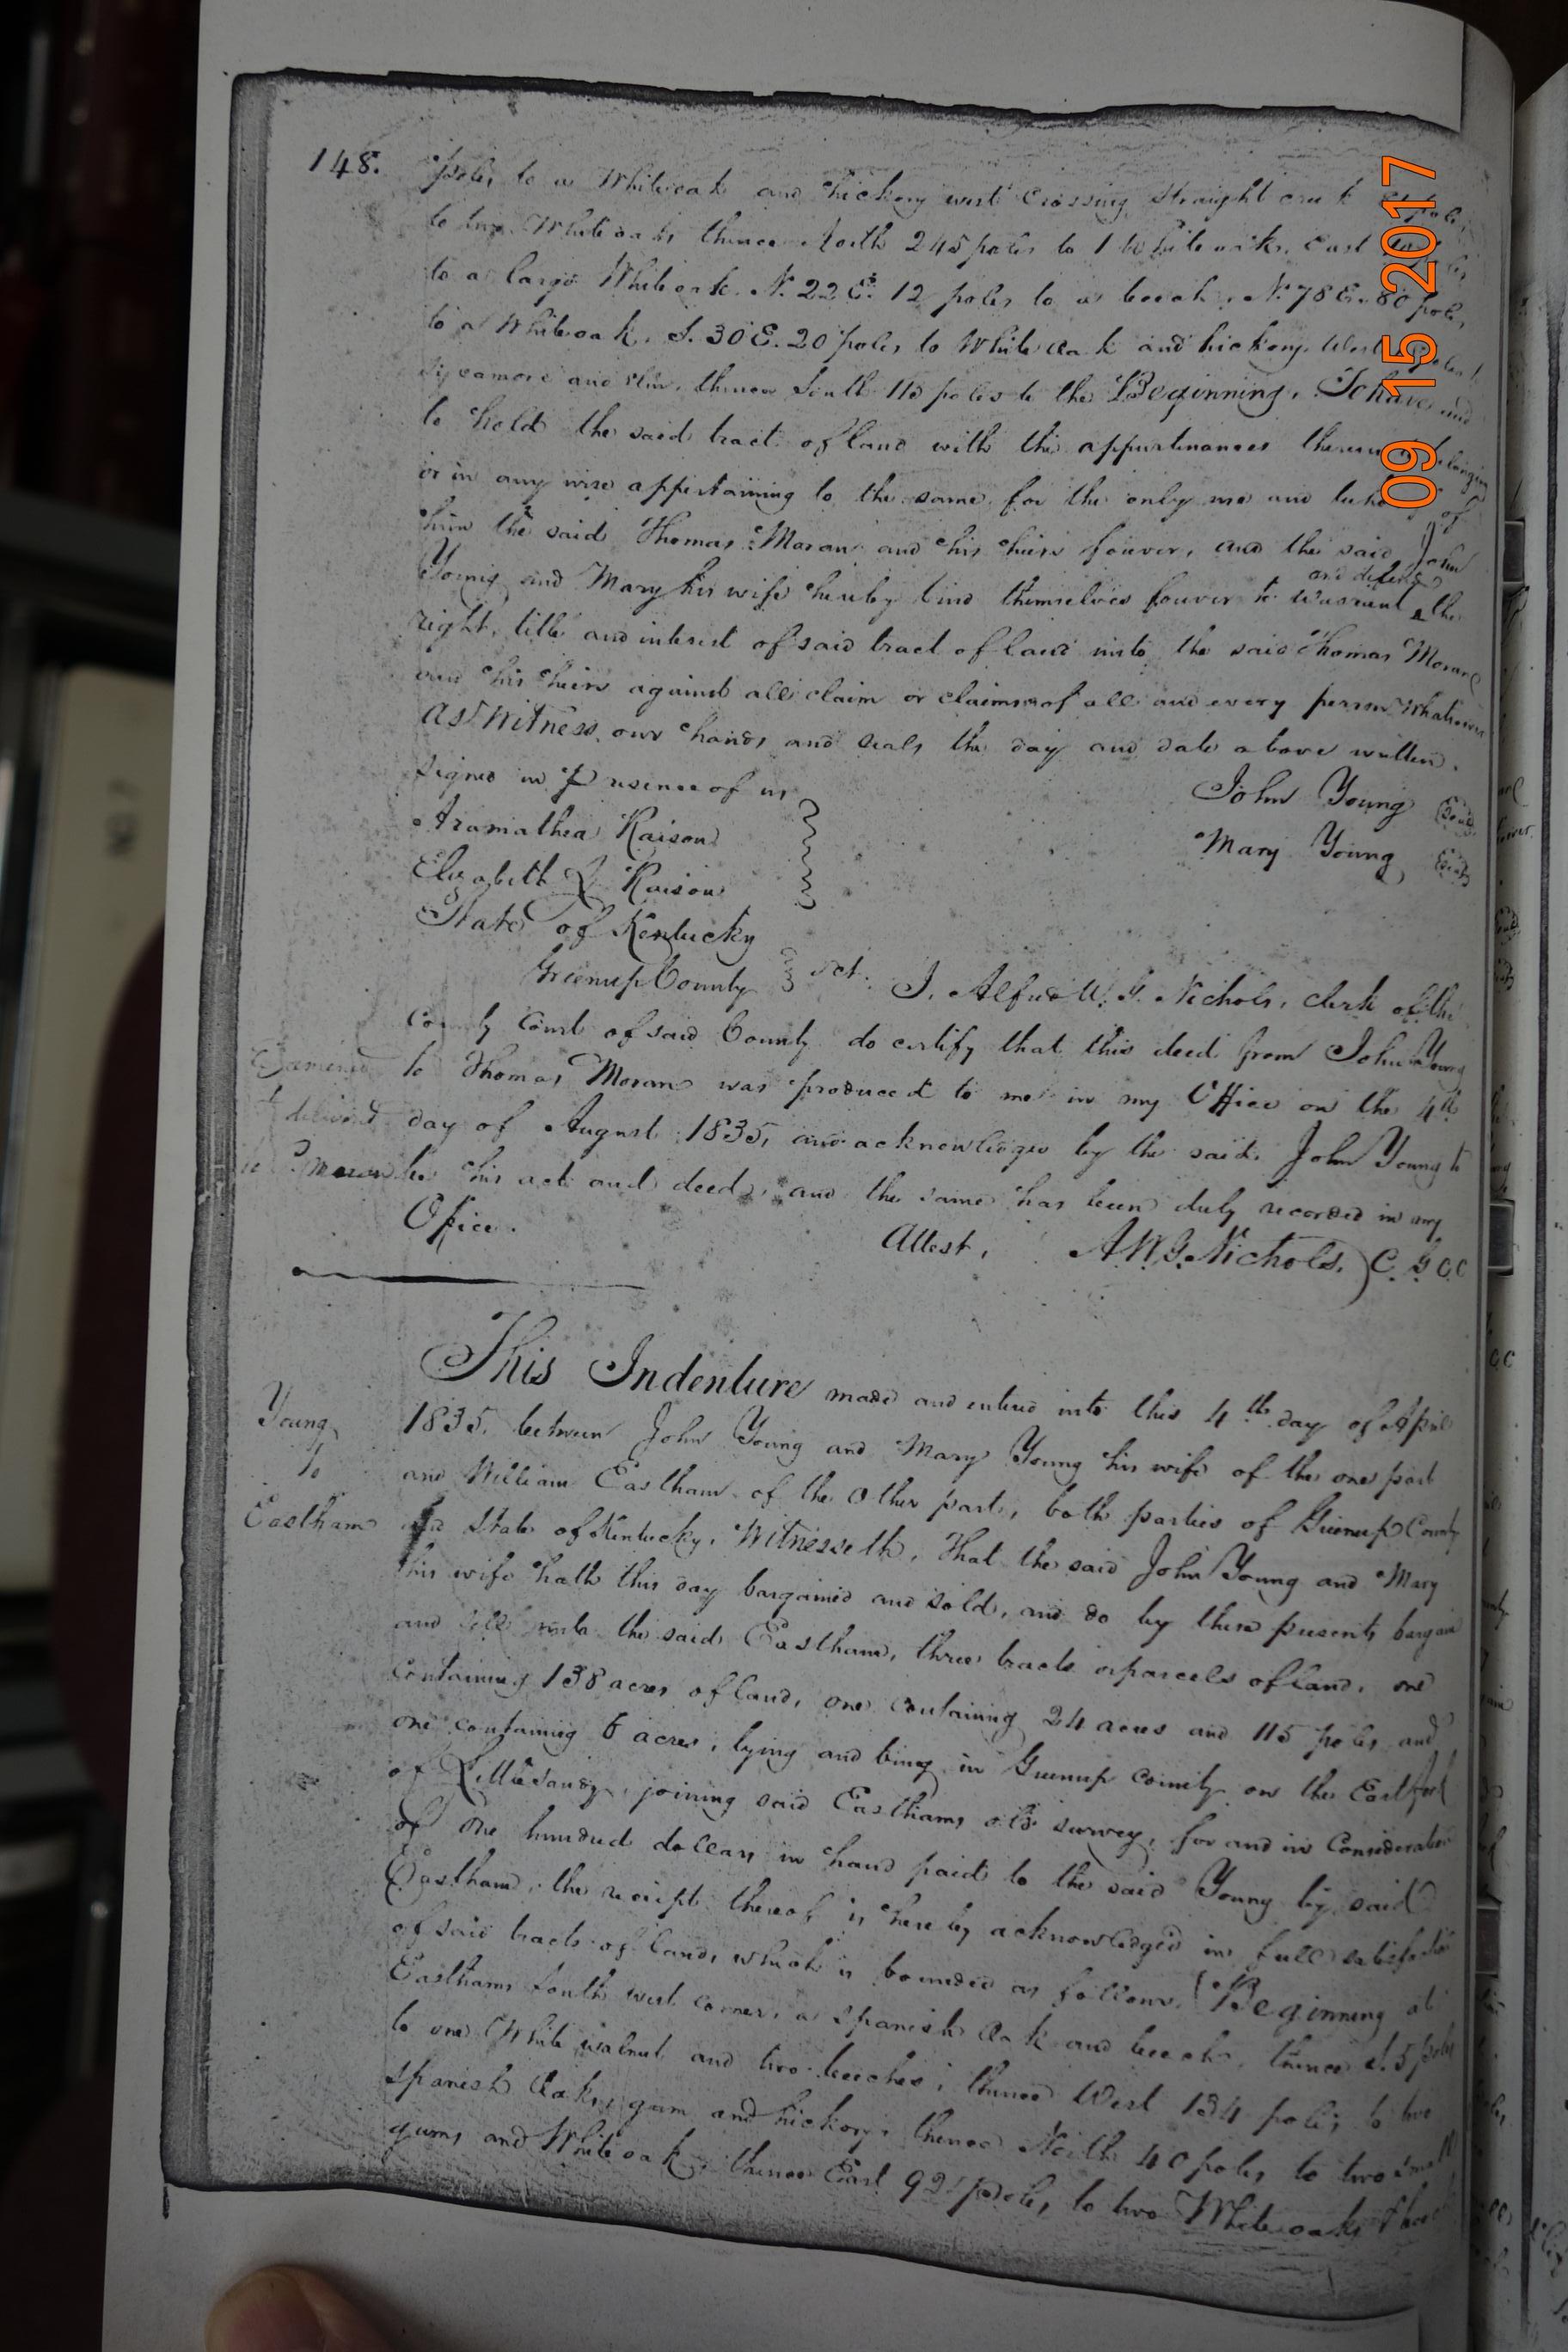 148. poles to a Whiteoak and hickory west crossing Straight creek poles
to two Whiteoaks thence North 245 poles to 1 Whiteoak, East
to a large Whiteoak. N. 22 E. 12 poles to a beech, N. 78 E. 80 poles
to a Whiteoak, S. 30 E. 20 poles to White oak and hickory. West
Sycamore and elm, thence South 115 poles to the Beginning. To have and
to hold the said tract of land with the appurtenances thereunto belonging
or in any wise appertaining to the same, for the only use and behoof of
him the said Thomas Moran and his heirs forever, and the said John
Young and Mary his wife hereby bind themselves forever to warrant and defend the
right, title and interest of said tract of land unto the said Thomas Moran
and his heirs against all claim or claims of all and every person whatsoever
As Witness our hands and seals the day and date above written.
Signed in Presence of us
John Young Seal
Aramathea Raison
Mary Young Seal
Elizabeth Raison
State of Kentucky
Greenup County sct. I, Alfred W. G. Nichols, clerk of the
County Court of said County do certify that this deed from John Young
Examined to Thomas Moran was produced to me in my Office on the 4th
& delivered day of August 1835, and acknowledged by the said John Young to
to Moran be his act and deed, and the same has been duly recorded in my
Office.
Attest, A. W. G. Nichols, C. G. C. C
This Indenture made and entered into this 4th day of April
Young 1835, between John Young and Mary Young his wife of the one part
To and William Eastham of the other part, both parties of Greenup County
Eastham and State of Kentucky, Witnesseth, That the said John Young and Mary
his wife hath this day bargained and sold, and do by these presents bargain
and sell unto the said Eastham, three tracts or parcels of land, one
containing 138 acres of land, one containing 24 acres and 115 poles and
one containing 6 acres, lying and being in Greenup County on the East fork
of Little Sandy, joining said Easthams old survey, for and in Consideration
of one hundred dollars in hand paid to the said Young by said
Eastham, the receipt thereof is hereby acknowledged in full satisfaction
of said tracts of land, which is bounded as follows, Beginning at
Easthams South west corner, a Spanish Oak and beech, thence S. 5 poles
to one White walnut and two beeches, thence West 134 poles to two
Spanish Oaks, gum and hickory, thence North 40 poles, to two small
gums and Whiteoak, thence East 92 poles, to two Whiteoaks
09 15 2017